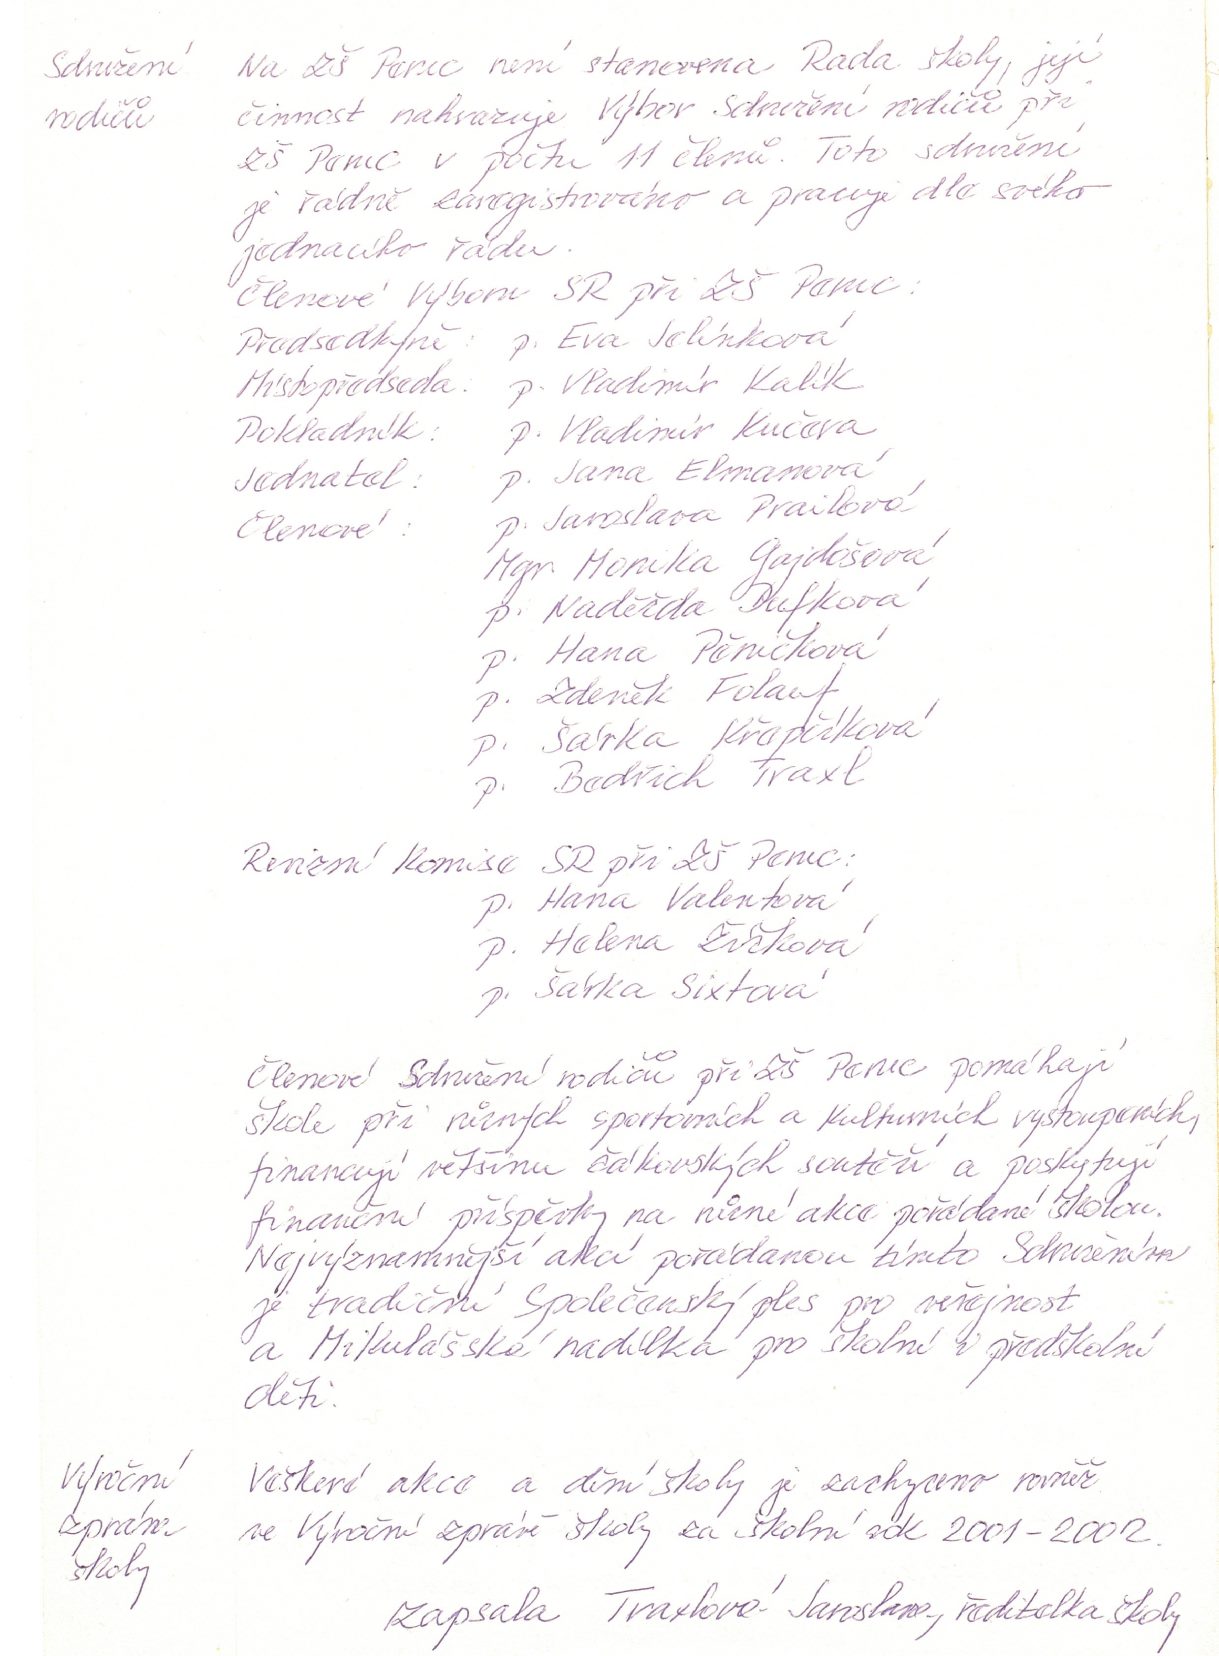 Sdružení
rodičů
Na ZŠ Peruc není stanovena Rada školy, její
činnost nahrazuje Výbor Sdružení rodičů při
ZŠ Peruc v počtu 11 členů. Toto sdružení
je řádně zaregistrováno a pracuje dle svého
jednacího řádu.
Členové Výboru SR při ZŠ Peruc:
Předsedkyně: p. Eva Jelínková
Místopředseda: p. Vladimír Kalík
Pokladník: p. Vladimír Kučera
Jednatel: p. Jana Elmanová
Členové: p. Jaroslava Prailová
Mgr. Monika Gajdošová
p. Naděžda Dufková
p. Hana Pěničková
p. Zdeněk Folauf
p. Šárka Křepčíková
p. Bedřich Traxl
Revizní Komise SR při ZŠ Peruc:
p. Hana Valentová
p. Helena Žižková
p. Šárka Sixtová
Členové Sdružení rodičů při ZŠ Peruc pomáhají
škole při různých sportovních a kulturních vystoupeních,
financují většinu žákovských soutěží a poskytují
finanční příspěvky na různé akce pořádané školou.
Nejvýznamnější akcí pořádanou tímto Sdružením
je tradiční Společenský ples pro veřejnost
a Mikulášská nadílka pro školní i předškolní
děti.
Výroční
zpráva
školy
Veškeré akce a dění školy je zachyceno rovněž
ve Výroční zprávě školy za školní rok 2001-2002.
Zapsala Traxlová Jaroslava, ředitelka školy